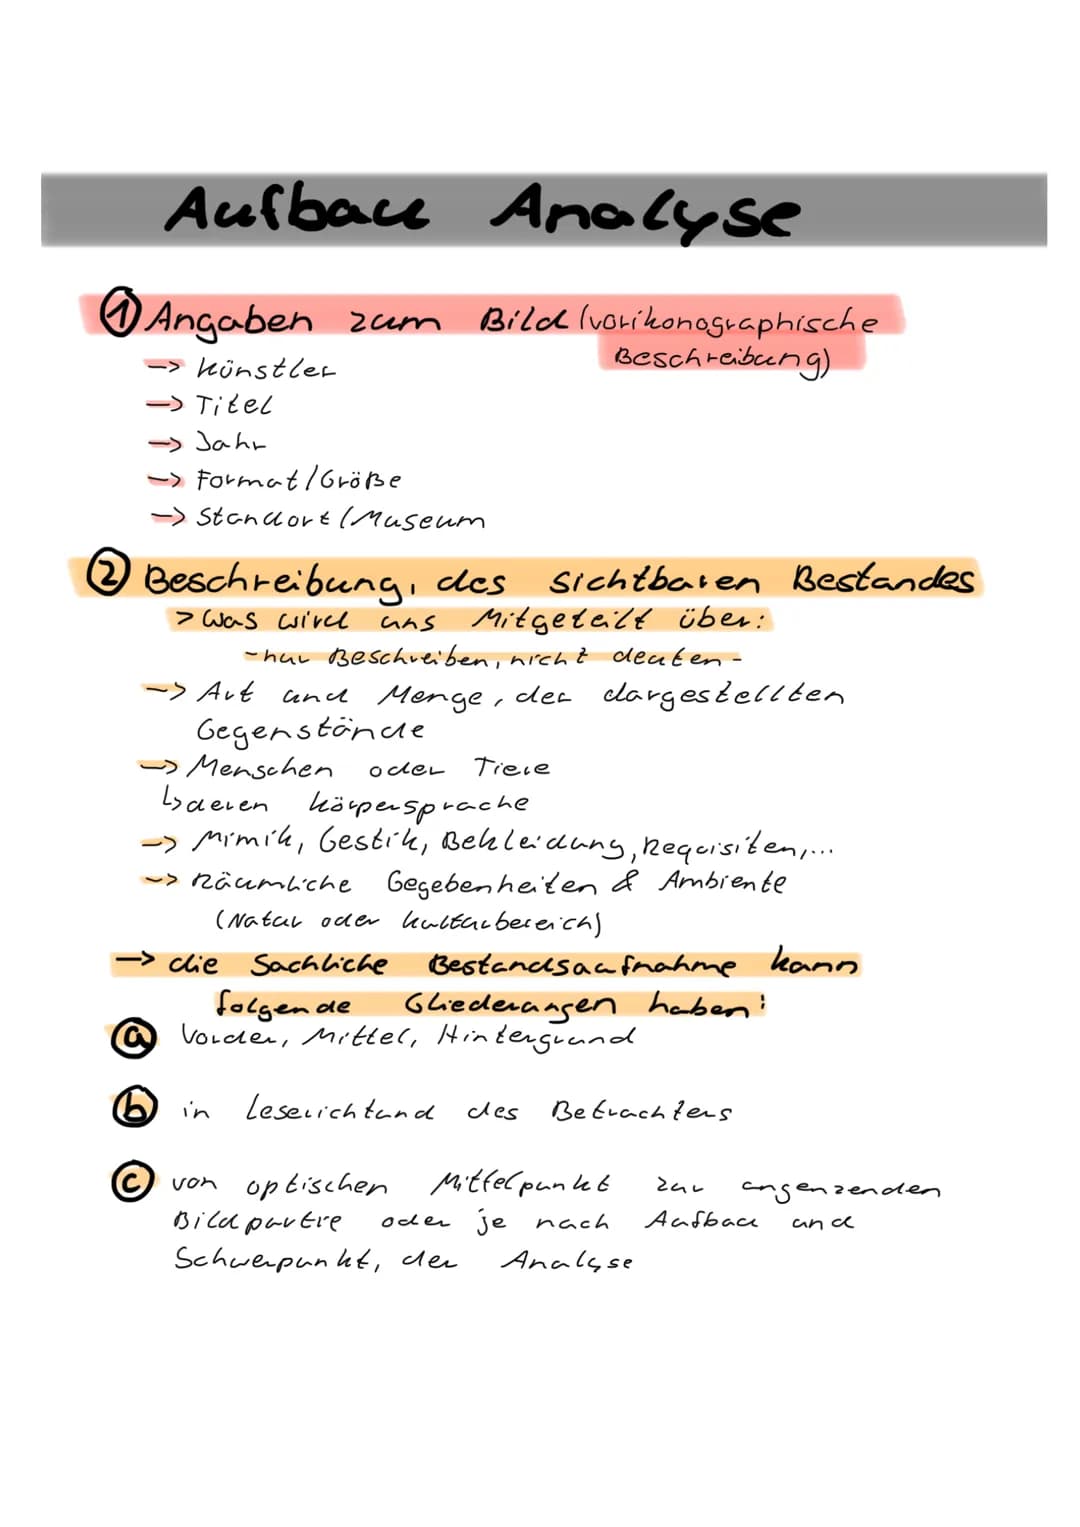 Aufbau Analyse
① Angaben zum Bild (vorikonographische
Beschreibung)
-> Künstler
-> Titel
-> Jahr
-> Format/Größe
-> Standort/Museum
② Beschreibung, des sichtbaren Bestandes
> Was wird uns Mitgeteilt über:
- nur Beschreiben, nicht deuten -
-> Art und Menge, der dargestellten
Gegenstände
-> Menschen oder Tiere
↳ deren körpersprache
-> Mimik, Gestik, Bekleidung, Requisiten,...
-> Räumliche Gegebenheiten & Ambiente
(Natur oder kulturbereich)
-> die Sachliche Bestandsaufnahme kann
folgende Gliederungen haben:
ⓐ Vorder, Mittel, Hintergrund
ⓑ in Leserichtund des Betrachters
ⓒ von optischen Mittelpunkt zur angenzenden
Bildpartie oder je nach Aufbau und
Schwerpunkt, der Analyse